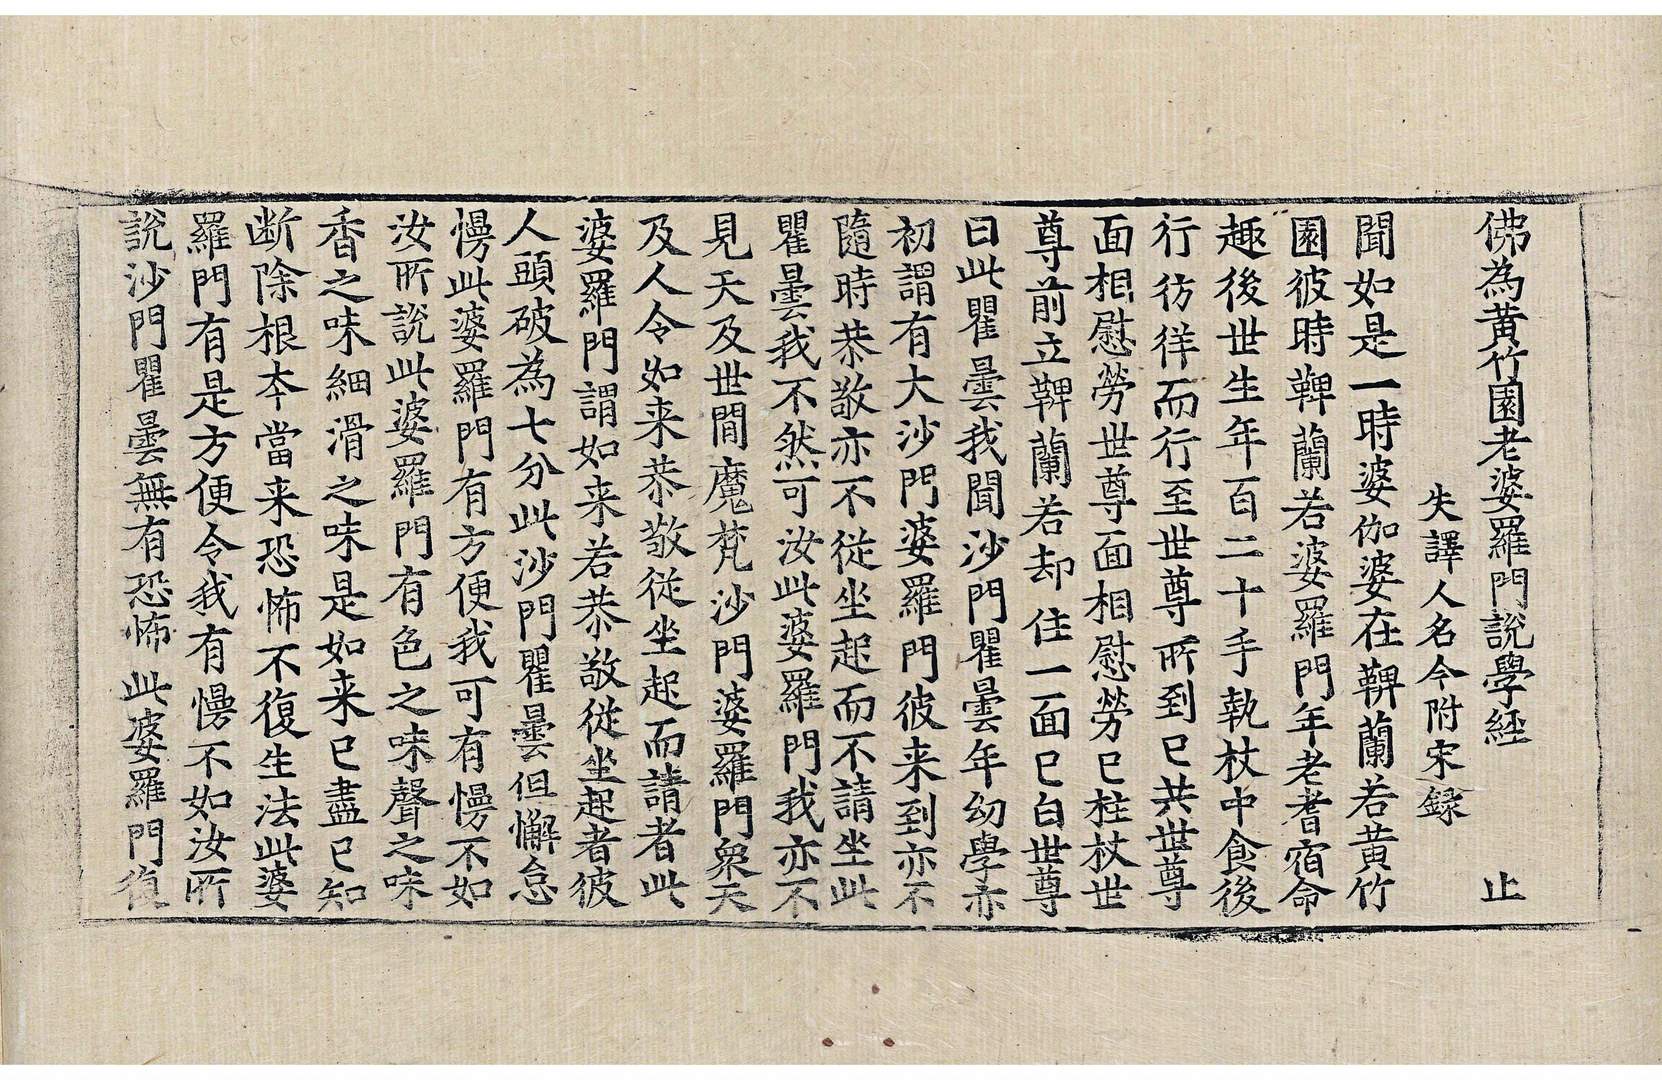 佛為黃竹園老婆羅門說學經 止
失譯人名今附宋録
聞如是一時婆伽婆在鞞蘭若黃竹
園彼時鞞蘭若婆羅門年老耆宿命
趣後世生年百二十手執杖中食後
行彷徉而行至世尊所到已共世尊
面相慰勞世尊面相慰勞已柱杖世
尊前立鞞蘭若却住一面已白世尊
曰此瞿曇我聞沙門瞿曇年幼學亦
初謂有大沙門婆羅門彼来到亦不
隨時恭敬亦不従坐起而不請坐此
瞿曇我不然可汝此婆羅門我亦不
見天及世間魔梵沙門婆羅門衆天
及人令如来恭敬従坐起而請者此
婆羅門謂如来若恭敬従坐起者彼
人頭破為七分此沙門瞿曇但懈怠
慢此婆羅門有方便我可有慢不如
汝所說此婆羅門有色之味聲之味
香之味細滑之味是如来已盡已知
断除根夲當来恐怖不復生法此婆
羅門有是方便令我有慢不如汝所
說沙門瞿曇無有恐怖此婆羅門復